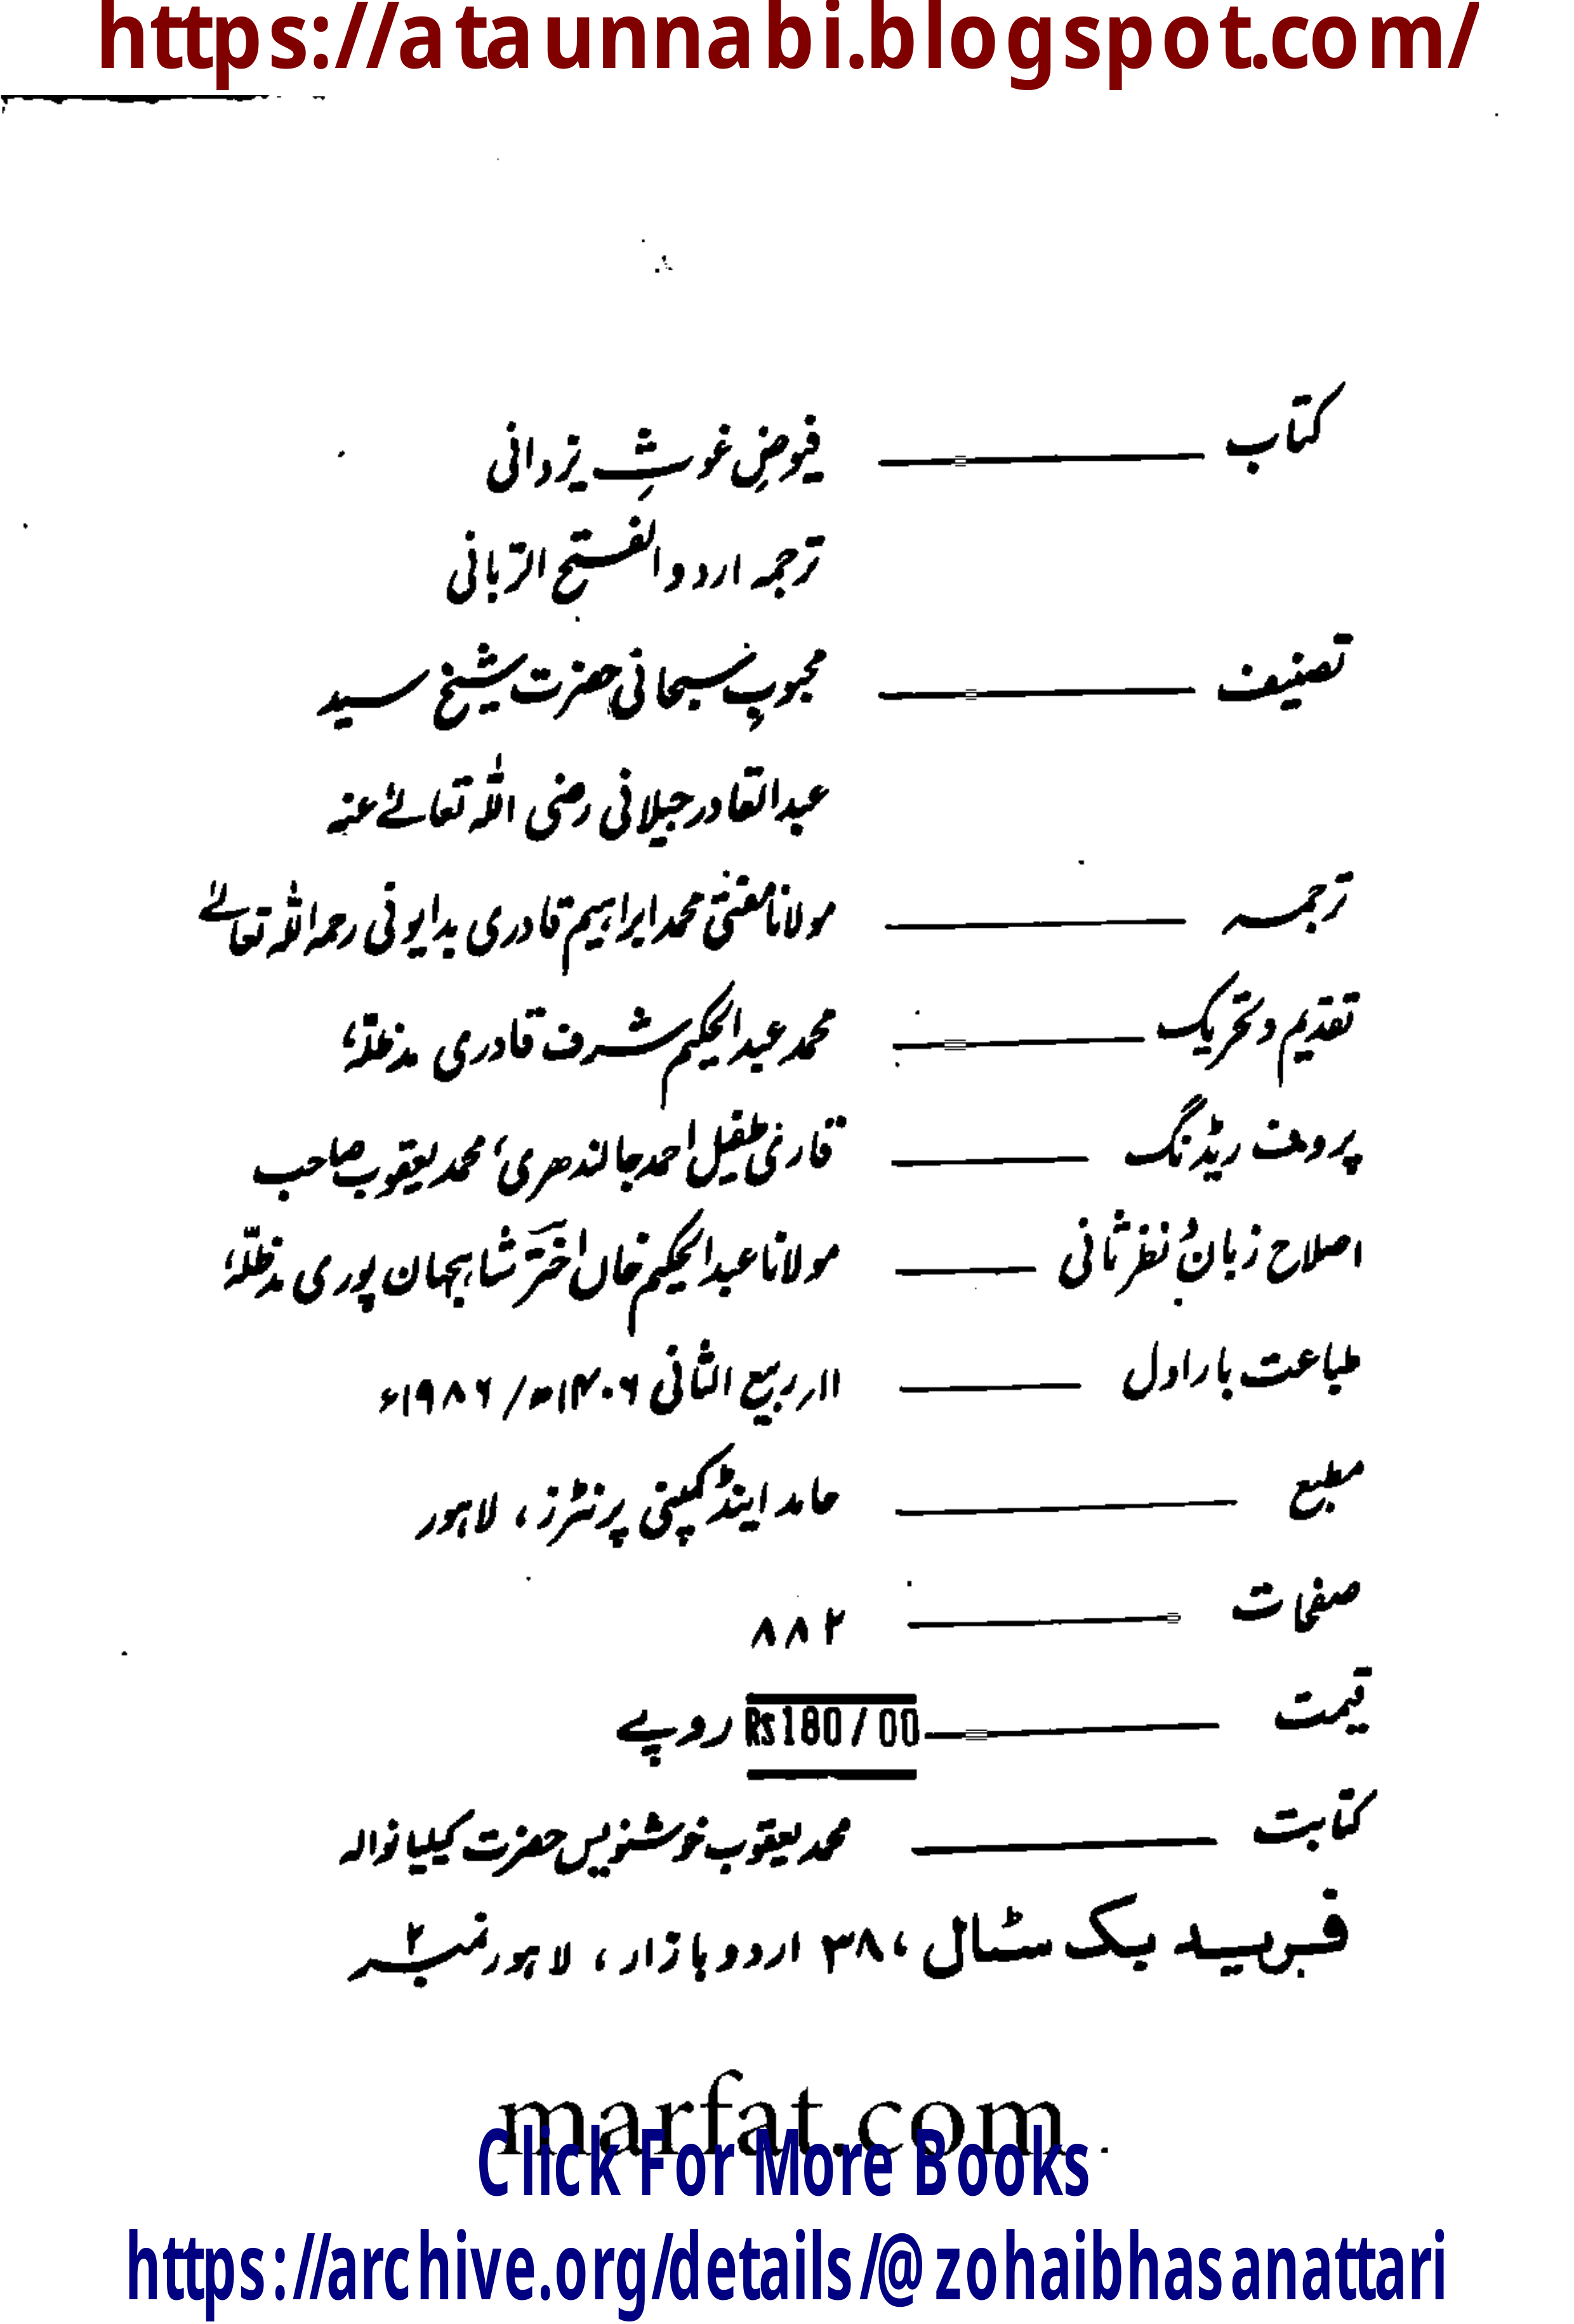 https://ataunnabi.blogspot.com/
کتاب ــــــ فیوضِ غوثِ یزدانی
ترجمہ اردو الفتح الربانی
تصنیف ــــــ محبوبِ سبحانی حضرت شیخ سید
عبدالقادر جیلانی رضی اللہ تعالےٰ عنہ
ترجمہ ــــــ مولانا مفتی محمد ابراہیم قادری بدایونی رحمہ اللہ تعالےٰ
تقدیم و تحریک ــــــ محمد عبدالحکیم شرف قادری مدظلّہٗ
پروف ریڈنگ ــــــ قاری طفیل احمد جالندھری، محمد یعقوب صاحب
اصلاح زبان و نظرثانی ــــــ مولانا عبدالحکیم خاں اختر شاہجہان پوری مدظلّہٗ
طباعت بار اول ــــــ ۱۱ ربیع الثانی ۱۴۰۶ھ / ۱۹۸۶ء
مطبع ــــــ حامد اینڈ کمپنی پرنٹرز، لاہور
صفحات ــــــ ۸۸۲
قیمت ــــــ Rs180/00 روپے
کتابت ــــــ محمد یعقوب خوشنویس حضرت کیلیانوالہ
فرید بک سٹال، ۳۸ اردو بازار، لاہور نمبر ۲
marfat.com
Click For More Books
https://archive.org/details/@zohaibhasanattari